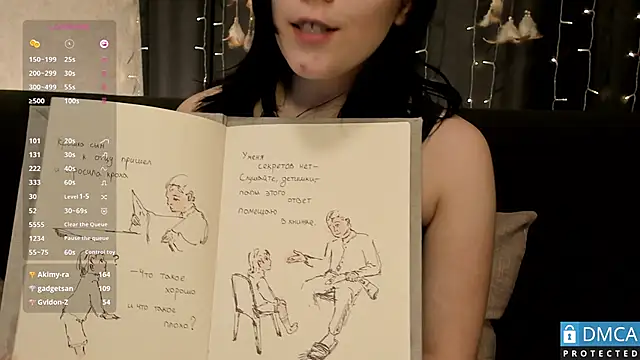 150~199 25s
200~299 30s
300~499 55s
≥500 100s
101 20s
131 30s
222 40s
333 60s
30 Level 1-5
52 30~69s
5555 Clear the Queue
1234 Pause the queue
55~75 60s Control toy
Akimy-ra 164
gadgetsan 109
Gvidon-2 54
Кроха сын
к отцу пришел
и спросила кроха
—Что такое
хорошо
и что такое
плохо?
У меня
секретов нет—
Слушайте, детишки—
папы этого
ответ
помещаю
в книжке.
DMCA
PROTECTED